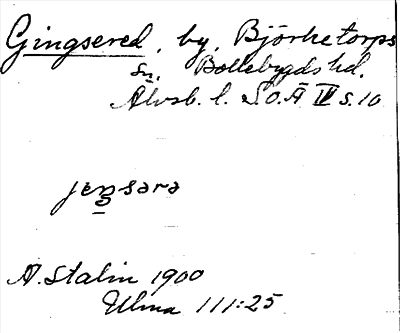 Gingsered, by, Björketorps
sn, Bollebygds hd.
Älvsb. l. S.O.Ä IV s. 10
jeŋsərə
A. Stalin 1900
Ulma 111:25